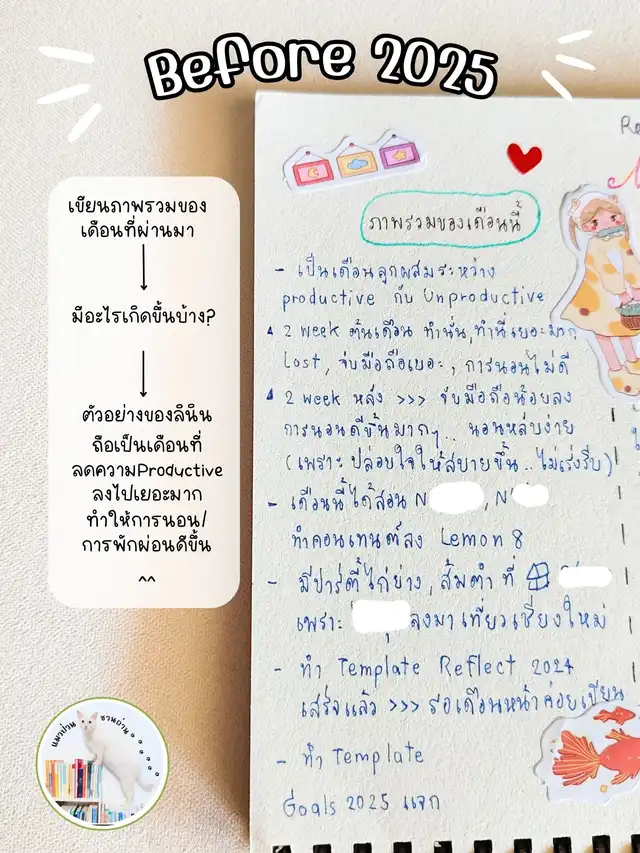 Before 2025
เขียนภาพรวมของ
เดือนที่ผ่านมา
มีอะไรเกิดขึ้นบ้าง?
ตัวอย่างของลินิน
ถือเป็นเดือนที่
ลดความProductive
ลงไปเยอะมาก
ทำให้การนอน/
การพักผ่อนดีขึ้น
^^
แมวป่วน ชวนอ่าน
Re
ภาพรวมของเดือนนี้
- เป็นเดือนลูกผสมระหว่าง
productive กับ Unproductive
2 week ต้นเดือน ทำนั่น, ทำนี่เยอะมาก
Lost, จับมือถือเยอะ, การนอนไม่ดี
2 week หลัง >>> จับมือถือน้อยลง
การนอนดีขึ้นมากๆ... นอนหลับง่าย
(เพราะปล่อยใจให้สบายขึ้น...ไม่เร่งรีบ)
- เดือนนี้ได้สอน N , N
ทำคอนเทนต์ลง Lemon 8
- มีปาร์ตี้ไก่ย่าง, ส้มตำ ที่
เพราะ ลงมาเที่ยวเชียงใหม่
- ทำ Template Reflect 2024
เสร็จแล้ว >>> รอเดือนหน้าค่อยเขียน
- ทำ Template
Goals 2025 แจก